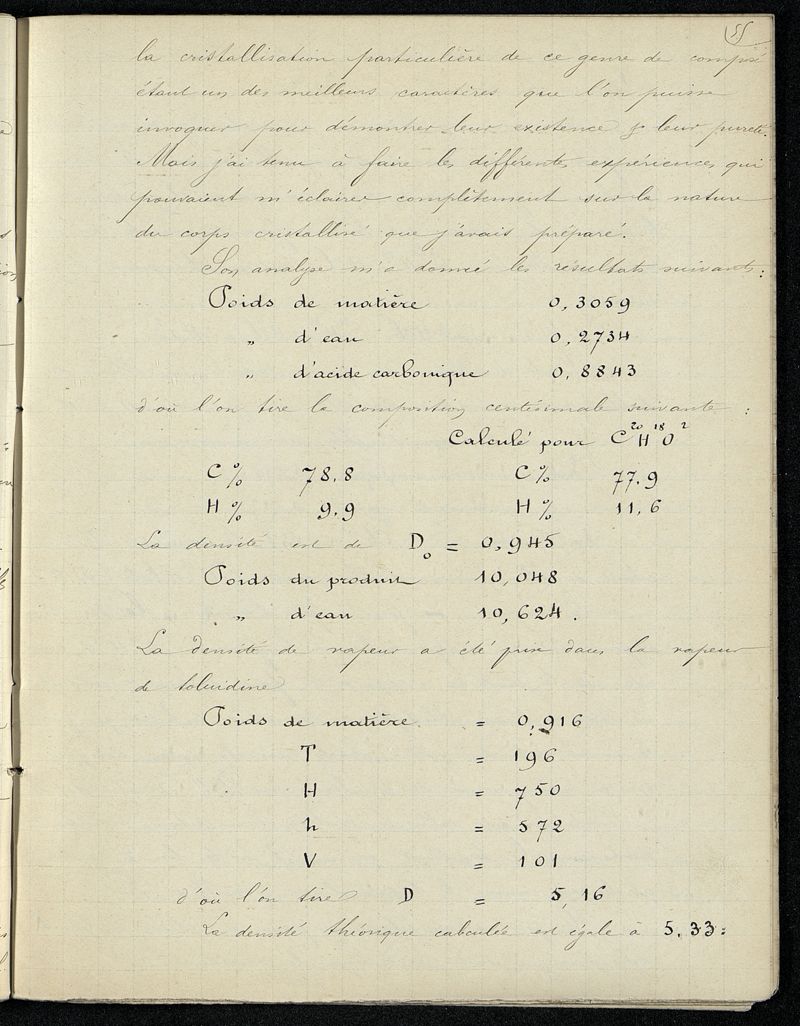 la cristallisation particulière de ce genre de composé
étant un des meilleurs caractères que l'on puisse
invoquer pour démontrer leur existence & leur pureté.
Mais j'ai tenu à faire les différentes expériences qui
pouvaient m'éclairer complètement sur la nature
du corps cristallisé que j'avais préparé.
Son analyse m'a donné les résultats suivants :
Poids de matière 0,3059
„ d'eau 0,2734
„ d'acide carbonique 0,8843
d'où l'on tire la composition centésimale suivante :
Calculé pour C²⁰H¹⁸O²
C % 78.8 C % 77.9
H % 9.9 H % 11.6
La densité est de D₀ = 0,945
Poids du produit 10,048
„ d'eau 10,624.
La densité de vapeur a été prise dans la vapeur
de toluidine
Poids de matière = 0,916
T = 196
H = 750
h = 572
V = 101
d'où l'on tire D = 5,16
La densité théorique calculée est égale à 5,33: